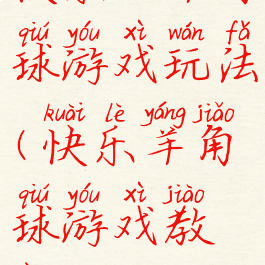 qiú yóu xì wán fǎ
球游戏玩法
kuài lè yáng jiǎo
(快乐羊角
qiú yóu xì jiào
球游戏教